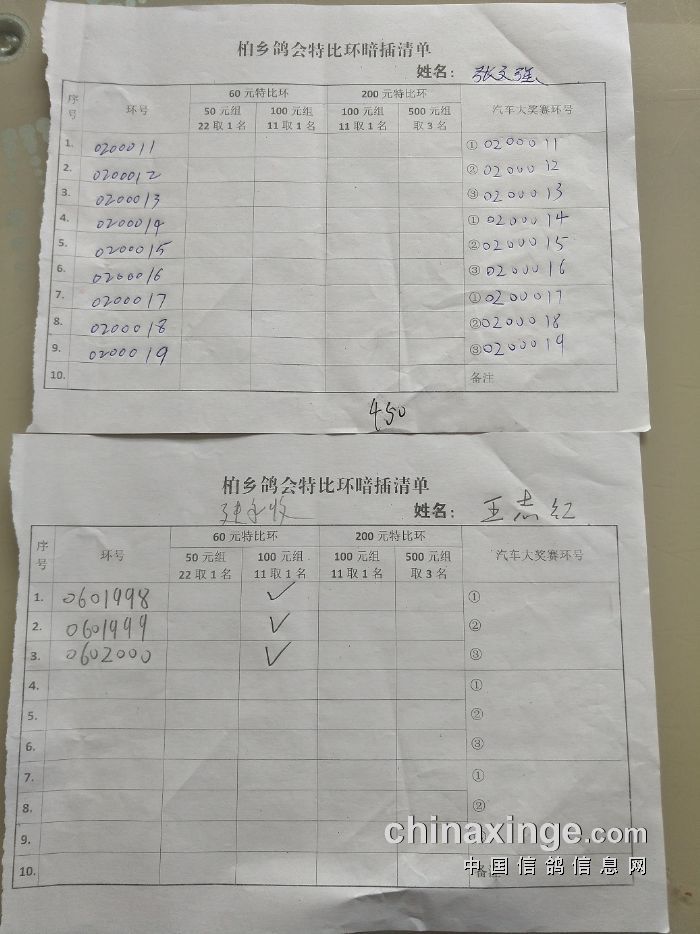 柏乡鸽会特比环暗插清单
姓名：张文强
序号 环号 60元特比环 200元特比环 汽车大奖赛环号
50元组 22取1名 100元组 11取1名 100元组 11取1名 500元组 取3名
1. 0200011 ① 0200011
2. 0200012 ② 0200012
3. 0200013 ③ 0200013
4. 0200014 ① 0200014
5. 0200015 ② 0200015
6. 0200016 ③ 0200016
7. 0200017 ① 0200017
8. 0200018 ② 0200018
9. 0200019 ③ 0200019
10. 备注
450
柏乡鸽会特比环暗插清单
姓名：王志红
序号 环号 60元特比环 200元特比环 汽车大奖赛环号
50元组 22取1名 100元组 11取1名 100元组 11取1名 500元组 取3名
1. 0601998 ✓ ①
2. 0601999 ✓ ②
3. 0602000 ✓ ③
4. ①
5. ②
6. ③
7. ①
8. ②
9. ③
10. 备注
chinaxinge.com
中国信鸽信息网